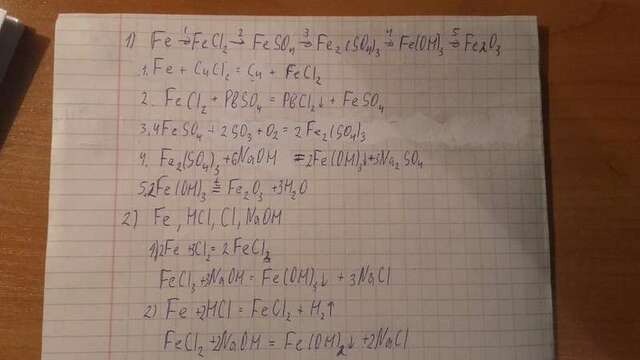 1) Fe →1 FeCl2 →2 FeSO4 →3 Fe2(SO4)3 →4 Fe(OH)3 →5 Fe2O3
1. Fe + CuCl2 = Cu + FeCl2
2. FeCl2 + PbSO4 = PbCl2↓ + FeSO4
3. 4FeSO4 + 2SO3 + O2 = 2Fe2(SO4)3
4. Fe2(SO4)3 + 6NaOH = 2Fe(OH)3↓ + 3Na2SO4
5. 2Fe(OH)3 t= Fe2O3 + 3H2O
2) Fe, HCl, Cl, NaOH
1) 2Fe + 3Cl2 = 2FeCl3
FeCl3 + 3NaOH = Fe(OH)3↓ + 3NaCl
2) Fe + 2HCl = FeCl2 + H2↑
FeCl2 + 2NaOH = Fe(OH)2↓ + 2NaCl